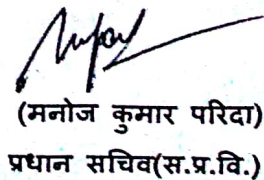 (मनोज कुमार परिदा)
प्रधान सचिव(स.प्र.वि.)